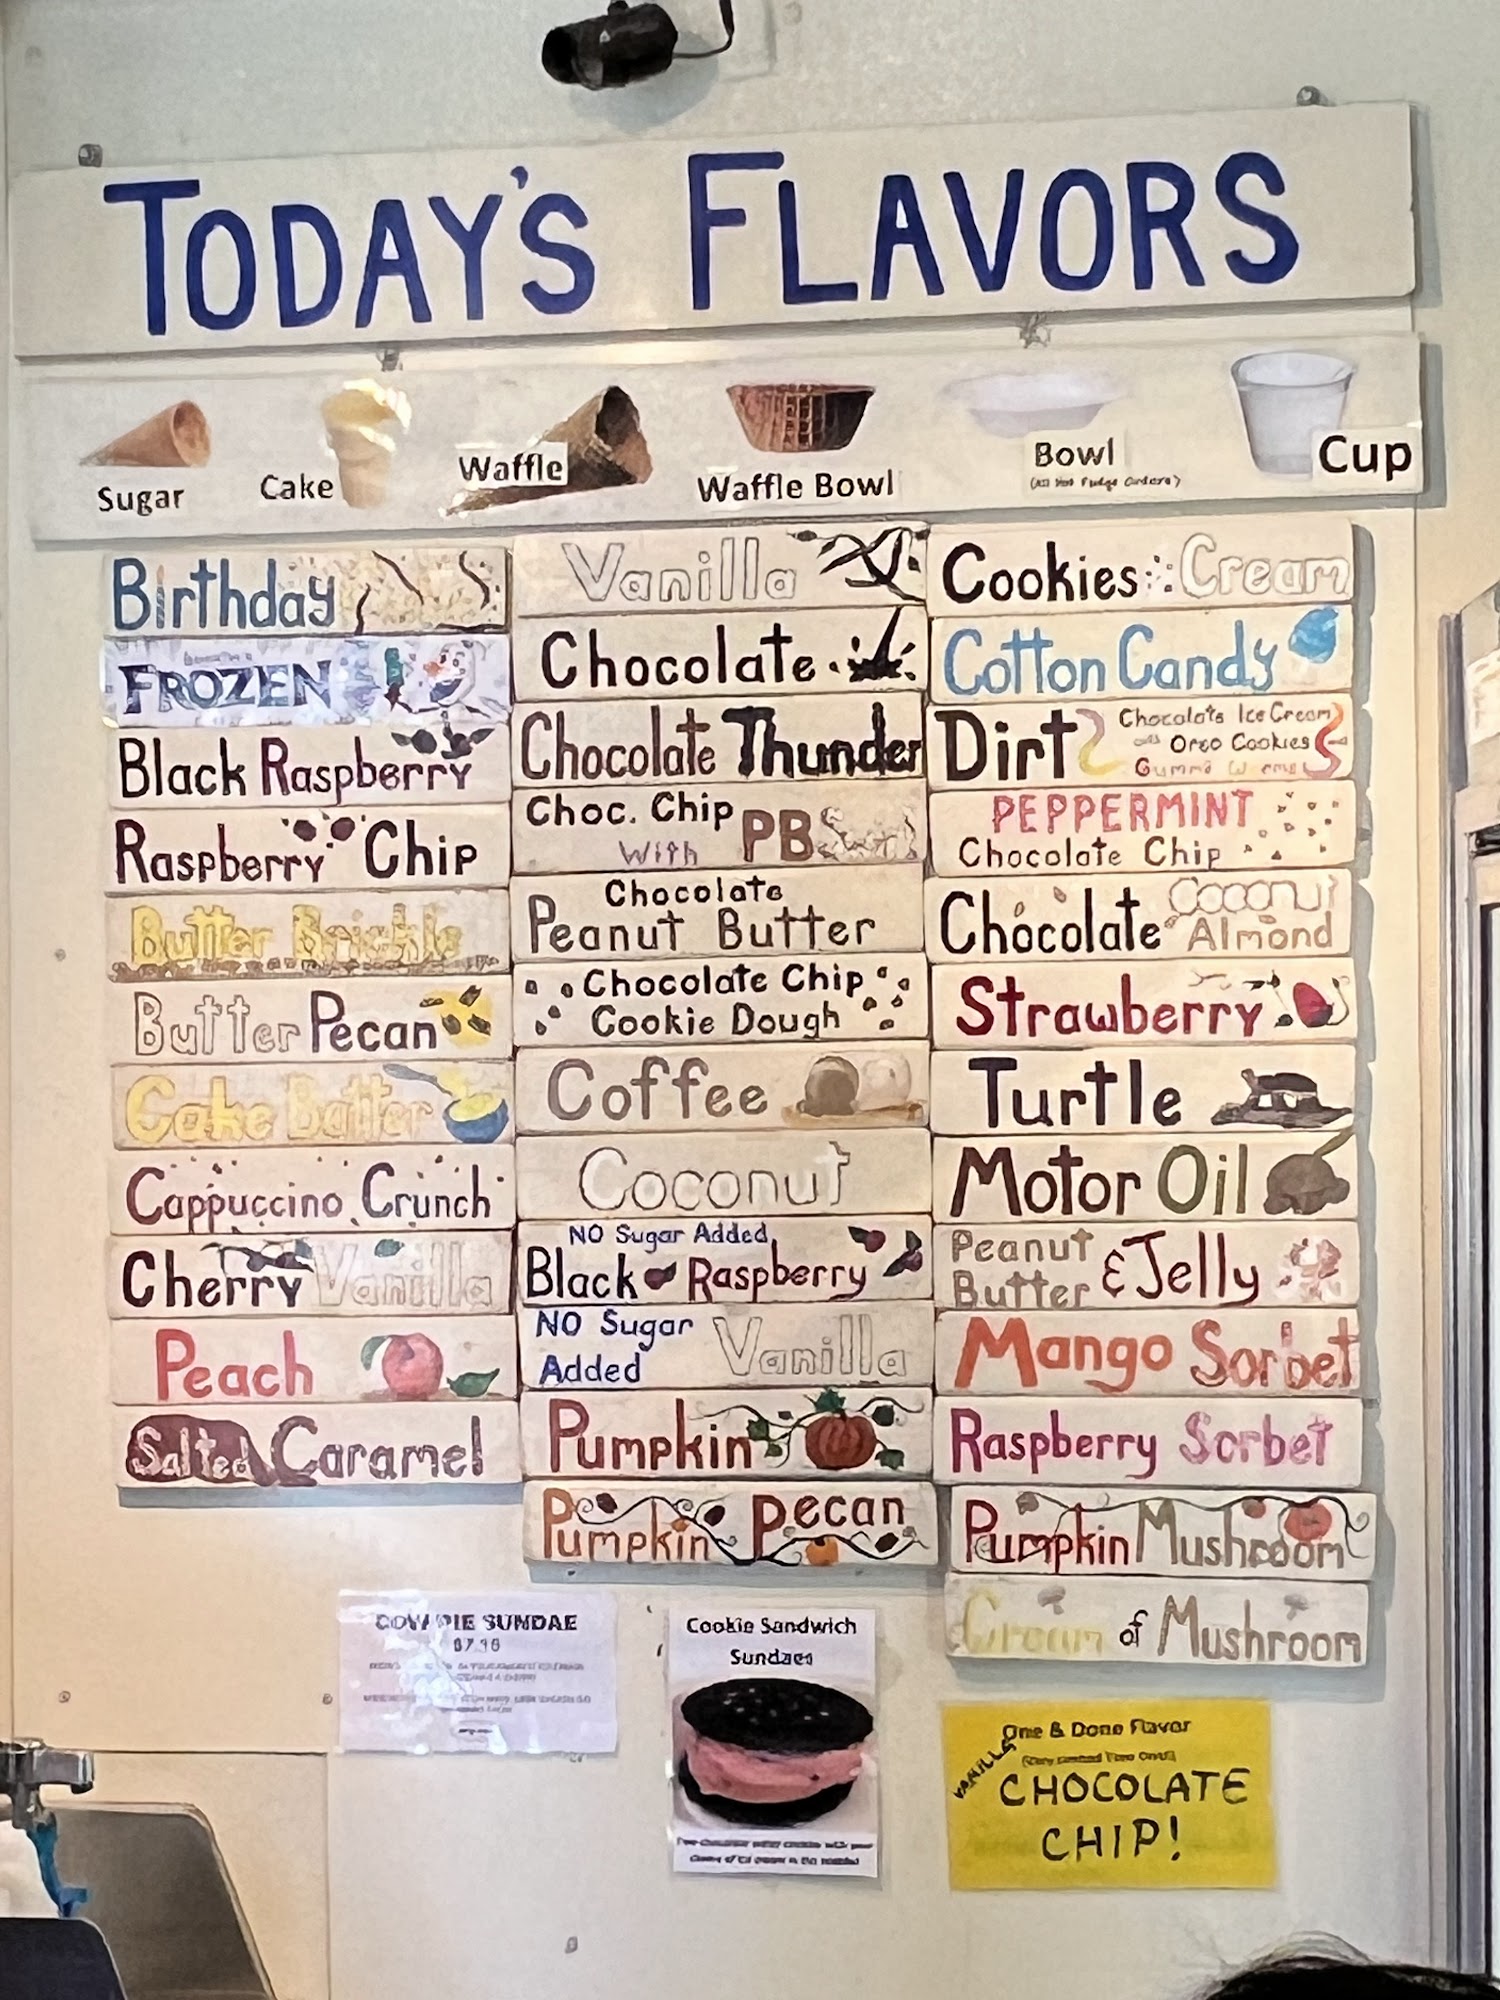 TODAY'S FLAVORS
Sugar
Cake
Waffle
Waffle Bowl
Bowl
(All Hot Fudge Orders)
Cup
Birthday
FROZEN
Black Raspberry
Raspberry Chip
Butter Brickle
Butter Pecan
Cake Batter
Cappuccino Crunch
Cherry Vanilla
Peach
Salted Caramel
Vanilla
Chocolate
Chocolate Thunder
Choc. Chip
With PB
Chocolate
Peanut Butter
Chocolate Chip
Cookie Dough
Coffee
Coconut
NO Sugar Added
Black Raspberry
NO Sugar
Added Vanilla
Pumpkin
Pumpkin Pecan
Cookies Cream
Cotton Candy
Dirt
Chocolate Ice Cream
Oreo Cookies
Gummi Worms
PEPPERMINT
Chocolate Chip
Chocolate Coconut
Almond
Strawberry
Turtle
Motor Oil
Peanut
Butter & Jelly
Mango Sorbet
Raspberry Sorbet
Pumpkin Mushroom
Cream of Mushroom
COW PIE SUNDAE
Cookie Sandwich
Sundaes
One & Done Flavor
VANILLA
CHOCOLATE
CHIP!